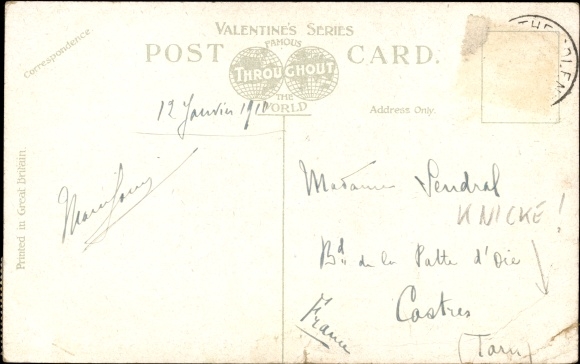 VALENTINE'S SERIES
FAMOUS
POST CARD.
THROUGHOUT
THE
WORLD
Correspondence.
Address Only.
Printed in Great Britain.
12 Janvier 1911
Madame Sendral
KNICKE!
Bd de la Patte d'Oie
Castres
(Tarn)
France